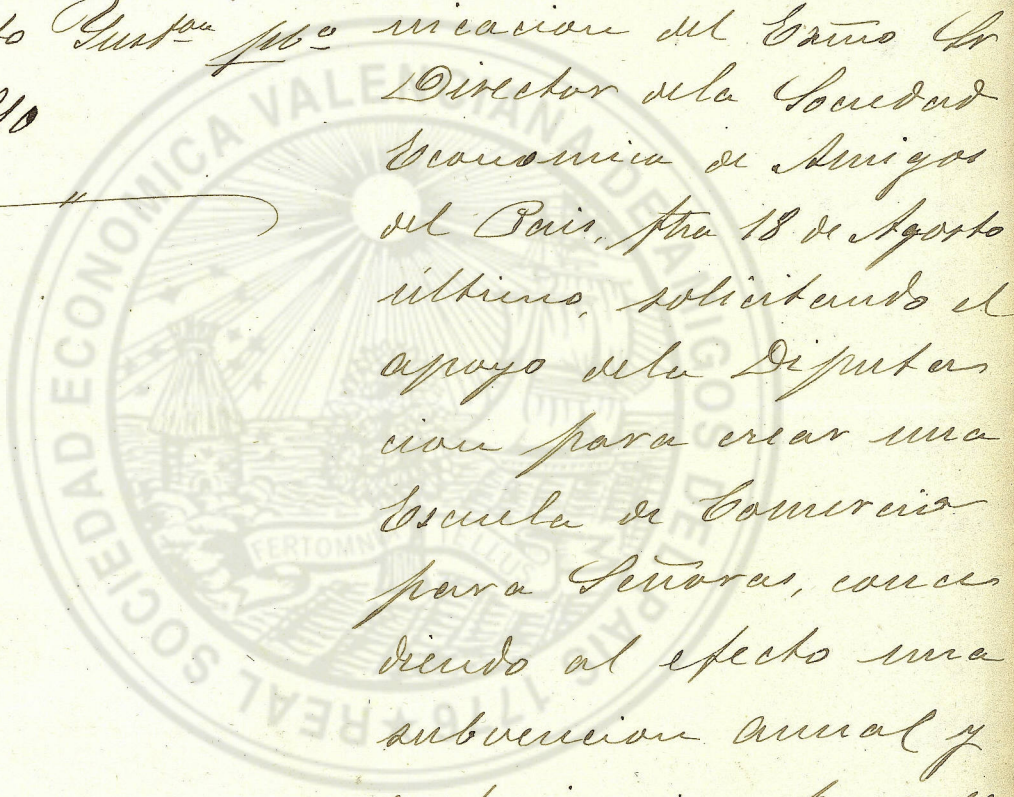 to Inst.on pb.ca
nicacion del Exmo Sr
Director dela Sociedad
Economica de Amigos
del Pais, fha 18 de Agosto
último, solicitando el
apoyo dela Diputa
cion para crear una
Escuela de Comercio
para Señoras, conce
diendo al efecto una
subvencion anual y
REAL SOCIEDAD ECONOMICA VALENCIANA DE AMIGOS DEL PAIS 1776